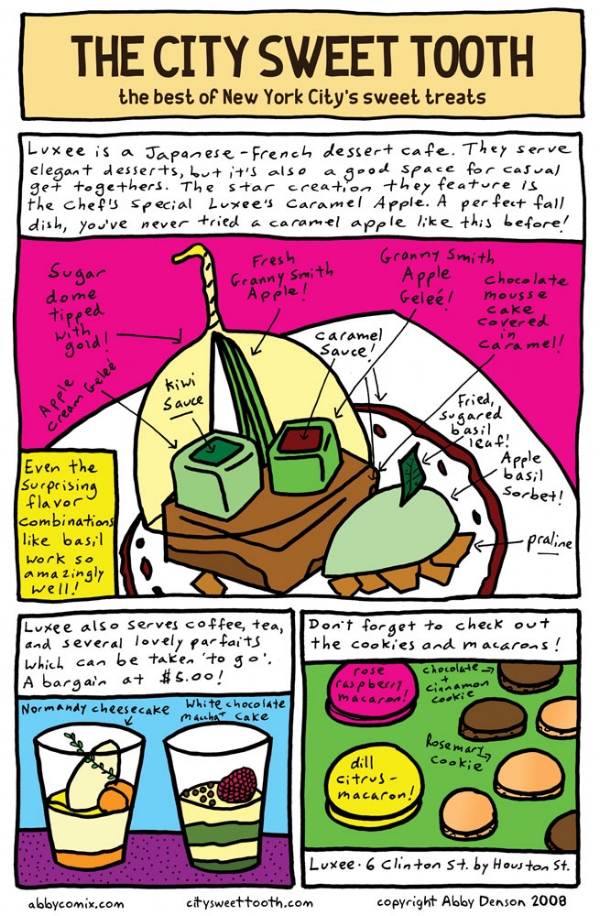 THE CITY SWEET TOOTH
the best of New York City's sweet treats
Luxee is a Japanese-French dessert cafe. They serve
elegant desserts, but it's also a good space for casual
get togethers. The star creation they feature is
the Chef's Special Luxee's Caramel Apple. A perfect fall
dish, you've never tried a caramel apple like this before!
Sugar
dome
tipped
with
gold!
Fresh
Granny Smith
Apple!
Granny Smith
Apple
Geleé!
Chocolate
mousse
cake
covered
in
caramel!
Caramel
Sauce!
Apple
Cream Geleé
Kiwi
Sauce
Fried,
sugared
basil
leaf!
Apple
basil
Sorbet!
praline
Even the
surprising
flavor
combinations
like basil
work so
amazingly
well!
Luxee also serves coffee, tea,
and several lovely parfaits
which can be taken 'to go'.
A bargain at $5.00!
Normandy cheesecake
White chocolate
maccha cake
Don't forget to check out
the cookies and macarons!
rose
raspberry
macaron!
chocolate
+
cinnamon
cookie
Rosemary
Cookie
dill
citrus-
macaron!
Luxee • 6 Clinton St. by Houston St.
abbycomix.com
citysweettooth.com
copyright Abby Denson 2008